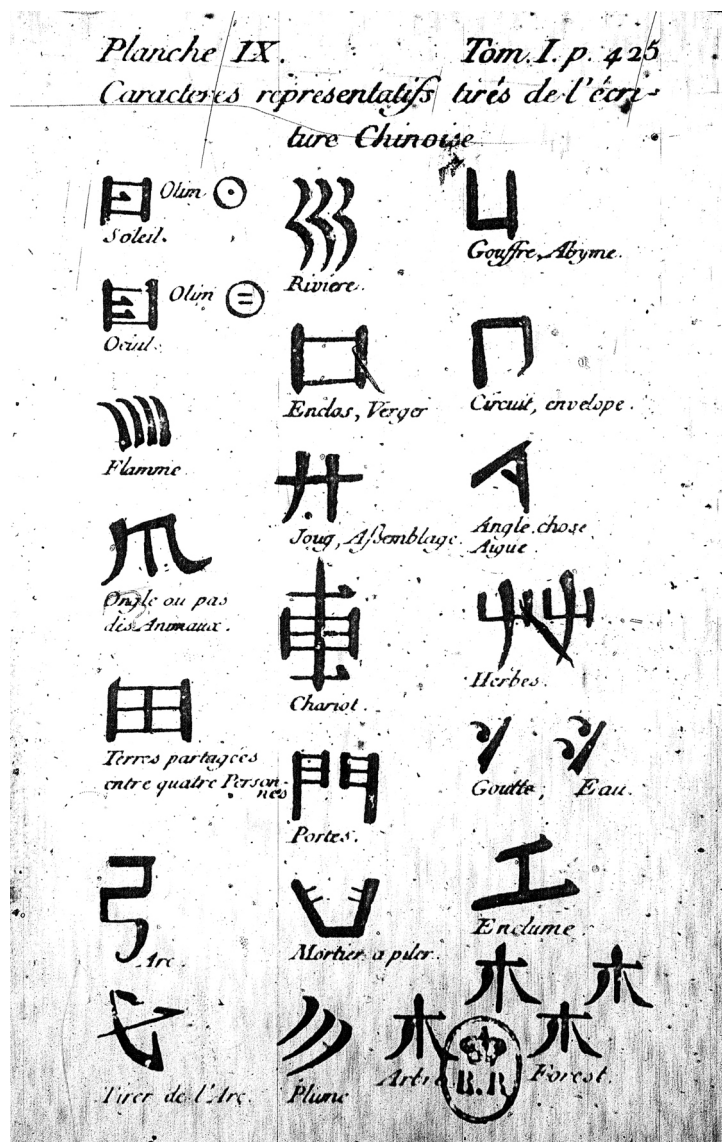 Planche IX.
Tom. I. p. 425
Caracteres representatifs tirés de l'écri-
ture Chinoise
Olim
Soleil.
Olim
Flamme.
Ongle ou pas
des Animaux.
Terres partagées
entre quatre Person-
nes
弓
Arc.
弋
Tirer de l'Arc.
巛
Riviere.
口
Enclos, Verger
廾
Joug, Assemblage
車
Chariot.
門
Portes.
臼
Mortier a piler.
彡
Plume
凵
Gouffre, Abyme.
冂
Circuit, envelope.
Angle, chose
Aigue.
艸
Herbes.
Goutte, Eau.
工
Enclume.
木
木
木
木
Arbre
Forest.
B.R